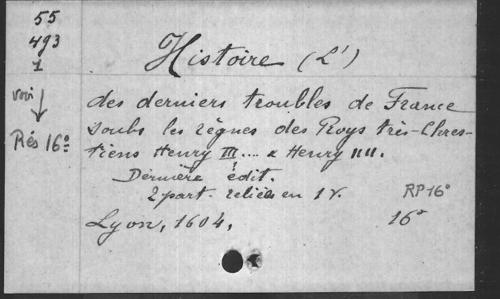 55
493
1
Histoire (L')
voir
Rés 16°
des derniers troubles de France
soubs les règnes des Roys très-Chres-
tiens Henry III.... & Henry IIII.
Dernière édit.
2 part. reliées en 1 v.
RP 16°
Lyon, 1604.
16°